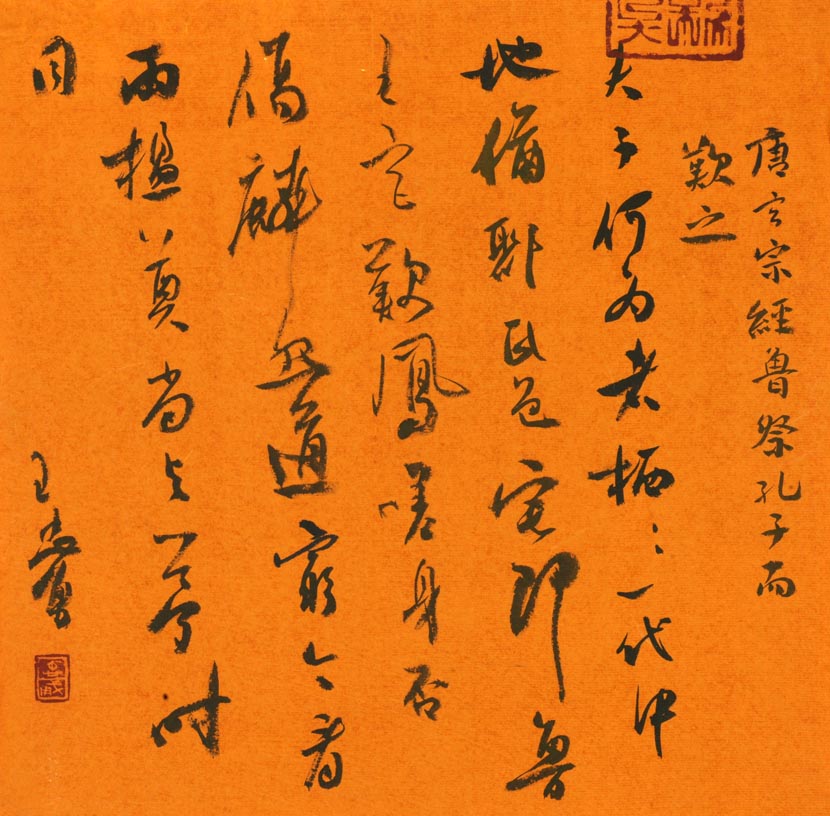 唐玄宗經魯祭孔子而
歎之
夫子何为者栖〻一代中
地猶鄹氏邑宅即魯
王宮歎鳳嗟身否
傷麟怨道窮今看
兩楹奠當与夢時
同
王